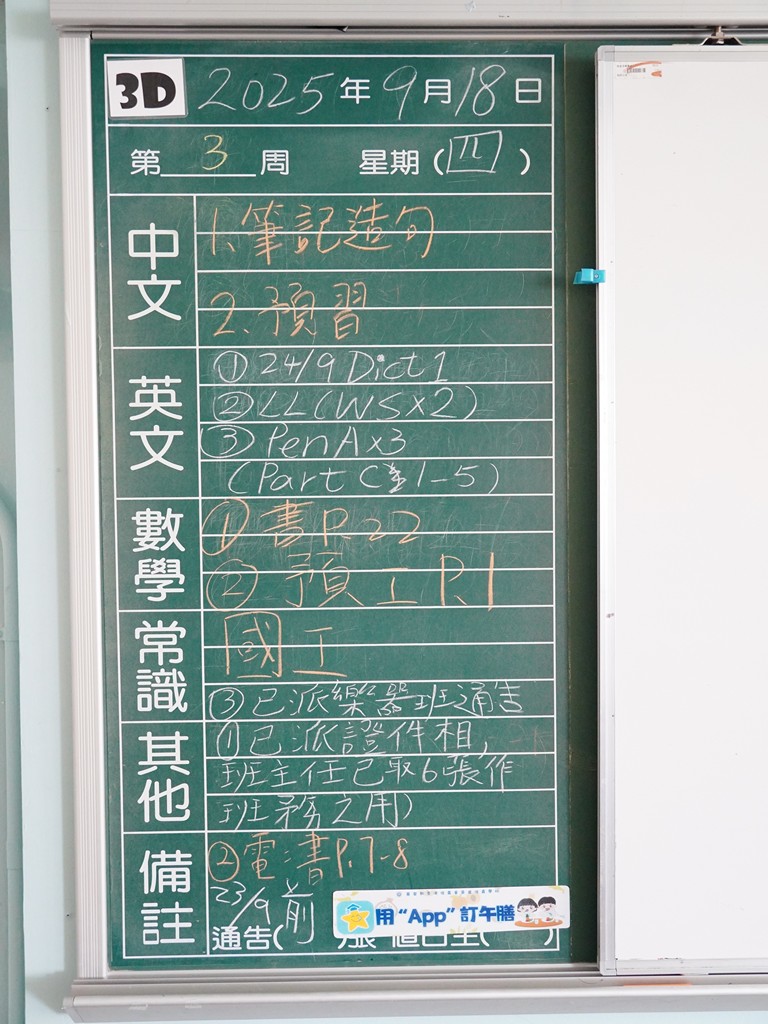 3D 2025年9月18日
第 3 周 星期(四)
中文
1.筆記造句
2.預習
英文
①24/9 Dict 1
②LL(WS×2)
③Pen A×3
(Part C寫1-5)
數學
①書P.22
②預工P.1
常識
國工
③已派樂器班通告
其他
①已派證件相,
班主任已取6張作
班務之用)
備註
②電:書P.7-8
23/9前
用“App”訂午膳
通告(